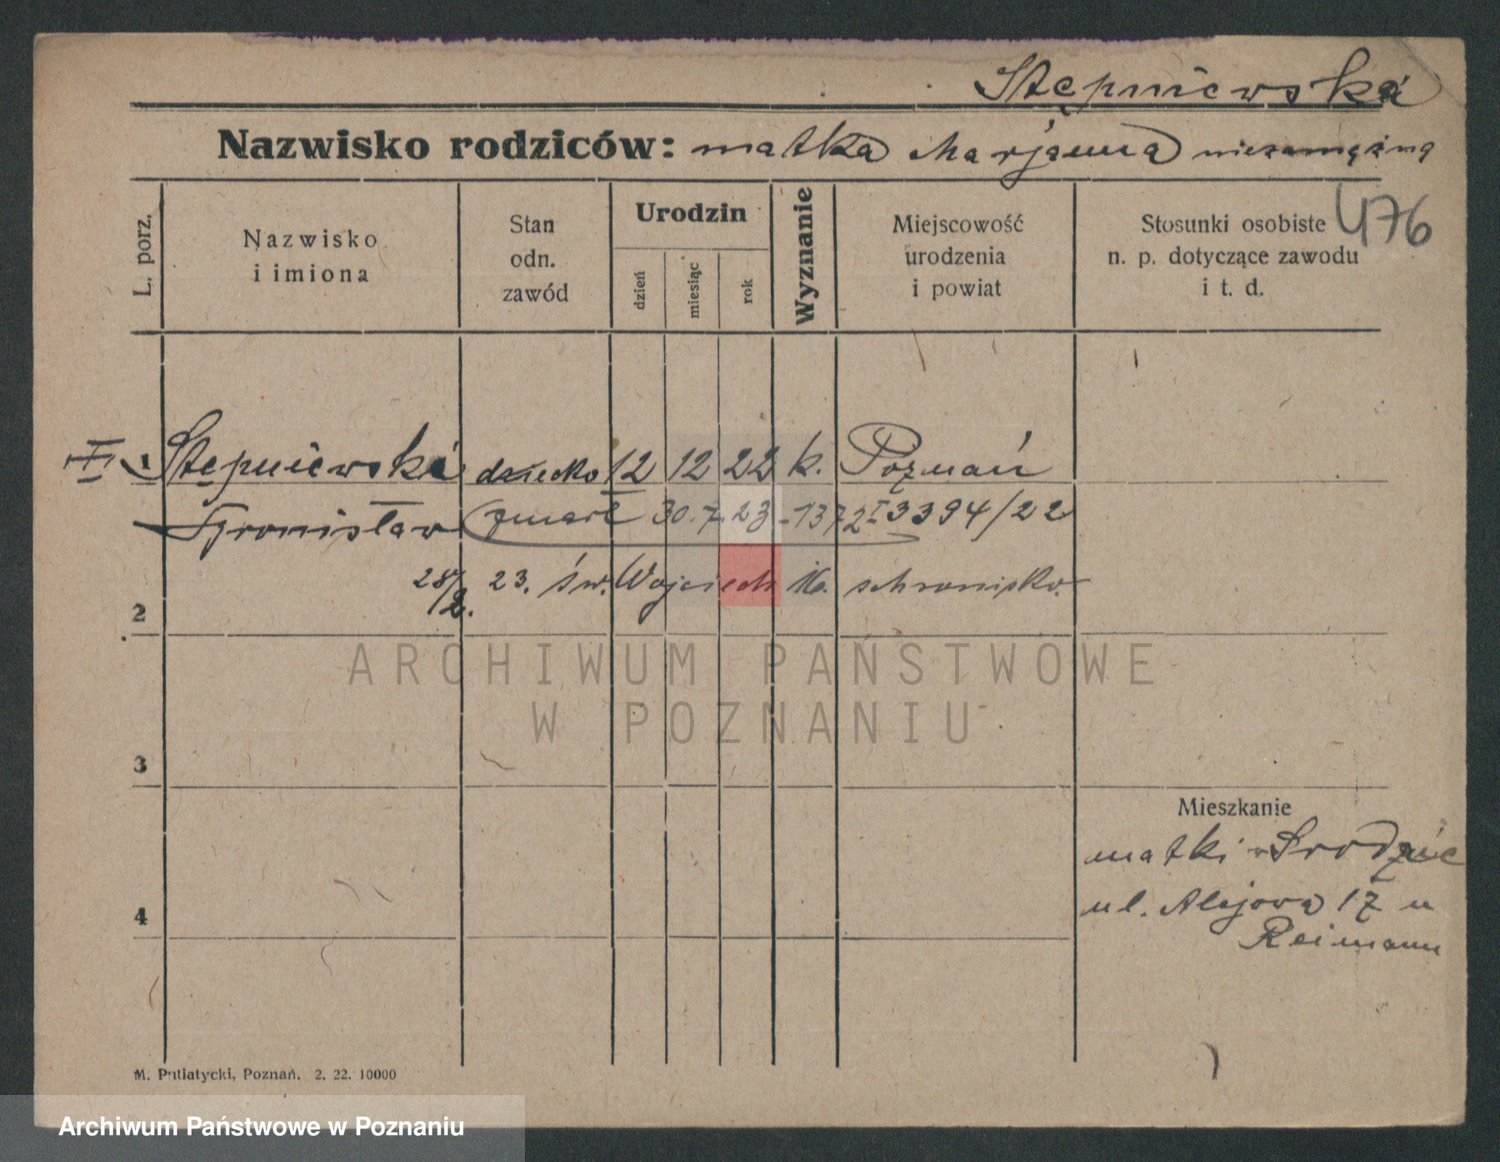 Stępniewska
Nazwisko rodziców: matka Marjanna niezamężna
476
L. porz.
Nazwisko
i imiona
Stan
odn.
zawód
Urodzin
dzień
miesiąc
rok
Wyznanie
Miejscowość
urodzenia
i powiat
Stosunki osobiste
n. p. dotyczące zawodu
i t. d.
I 1 Stępniewski dziecko 12 12 22 k. Poznań
Bronisław zmarł 30. 7. 23 - 1372 I 3394/22
28/2. 23. św. Wojciech 16. schronisko.
2
3
4
Mieszkanie
matki
ul. Alejowa 17 u
Reimann
M. Putiatycki, Poznań. 2. 22. 10000
ARCHIWUM PAŃSTWOWE
W POZNANIU
Archiwum Państwowe w Poznaniu